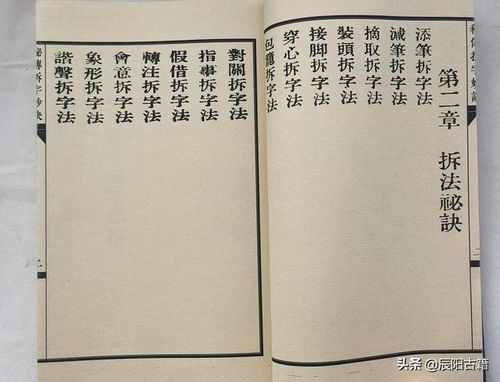 第二章　拆法祕訣
添筆拆字法
減筆拆字法
摘取拆字法
裝頭拆字法
接脚拆字法
穿心拆字法
包籠拆字法
對關拆字法
指事拆字法
假借拆字法
轉注拆字法
會意拆字法
象形拆字法
諧聲拆字法
祕傳拆字妙訣
二
头条 @辰阳古籍